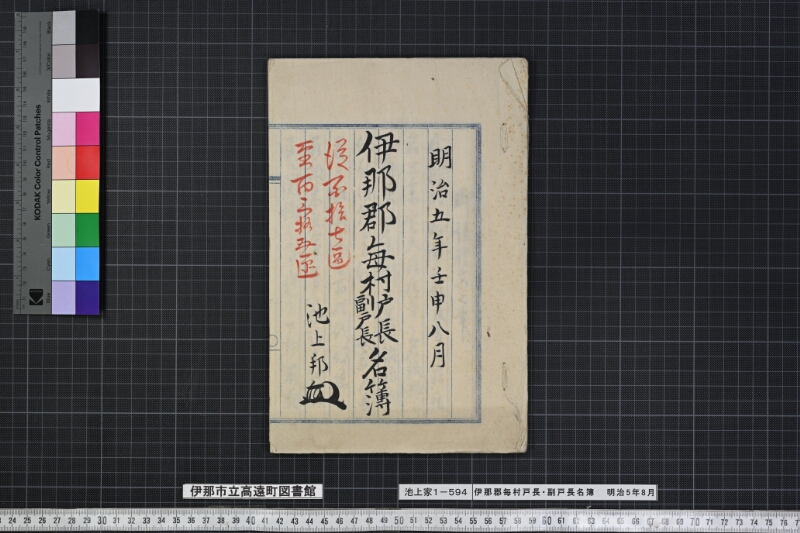 明治五年壬申八月
伊那郡毎村戸長副戸長名簿
従百拾七区
至百三拾五区
池上邦
伊那市立高遠町図書館
池上家1-594
伊那郡毎村戸長・副戸長名簿 明治5年8月
KODAK Color Control Patches
Kodak